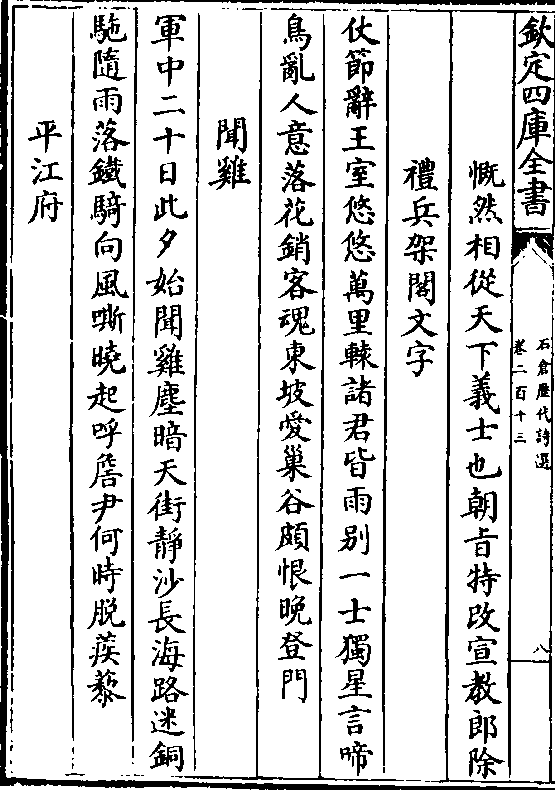 欽定四庫全書
石倉歷代詩選
卷二百十三
八
慨然相從天下義士也朝㫖特改宣教郎除
禮兵架閣文字
仗節辭王室悠悠萬里轅諸君皆雨别一士獨星言啼
鳥亂人意落花銷客魂東坡愛巢谷頗恨晚登門
聞雞
軍中二十日此夕始聞雞塵暗天街靜沙長海路迷銅
駞隨雨落鐵騎向風嘶曉起呼詹尹何時脱蒺藜
平江府